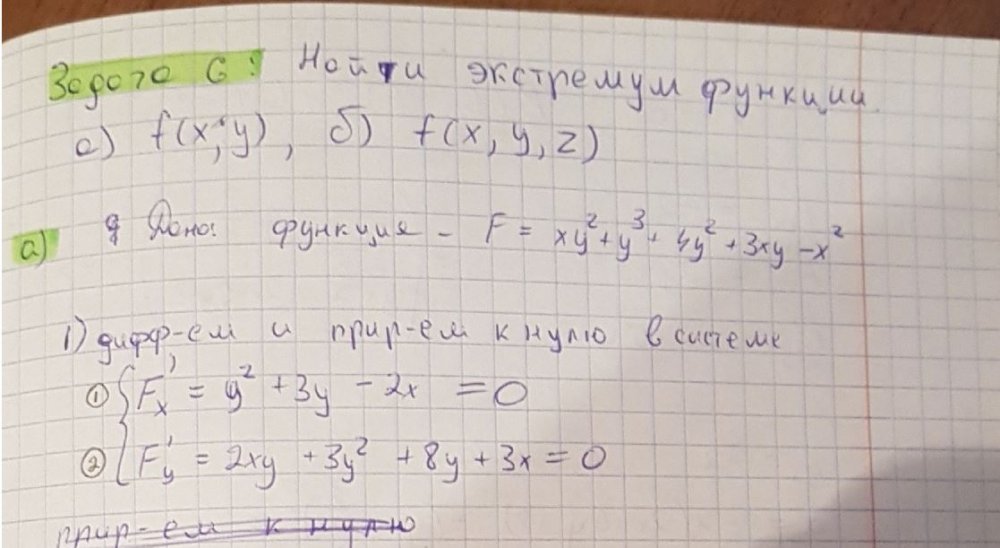 Задача 6: Найти экстремум функции
а) f(x, y), б) f(x, y, z)
а) Дано: функция - F = xy² + y³ + 4y² + 3xy - x²
1) дифф-ем и прир-ем к нулю в системе
① { F'ₓ = y² + 3y - 2x = 0
② { F'ᵧ = 2xy + 3y² + 8y + 3x = 0
прир-ем к нулю